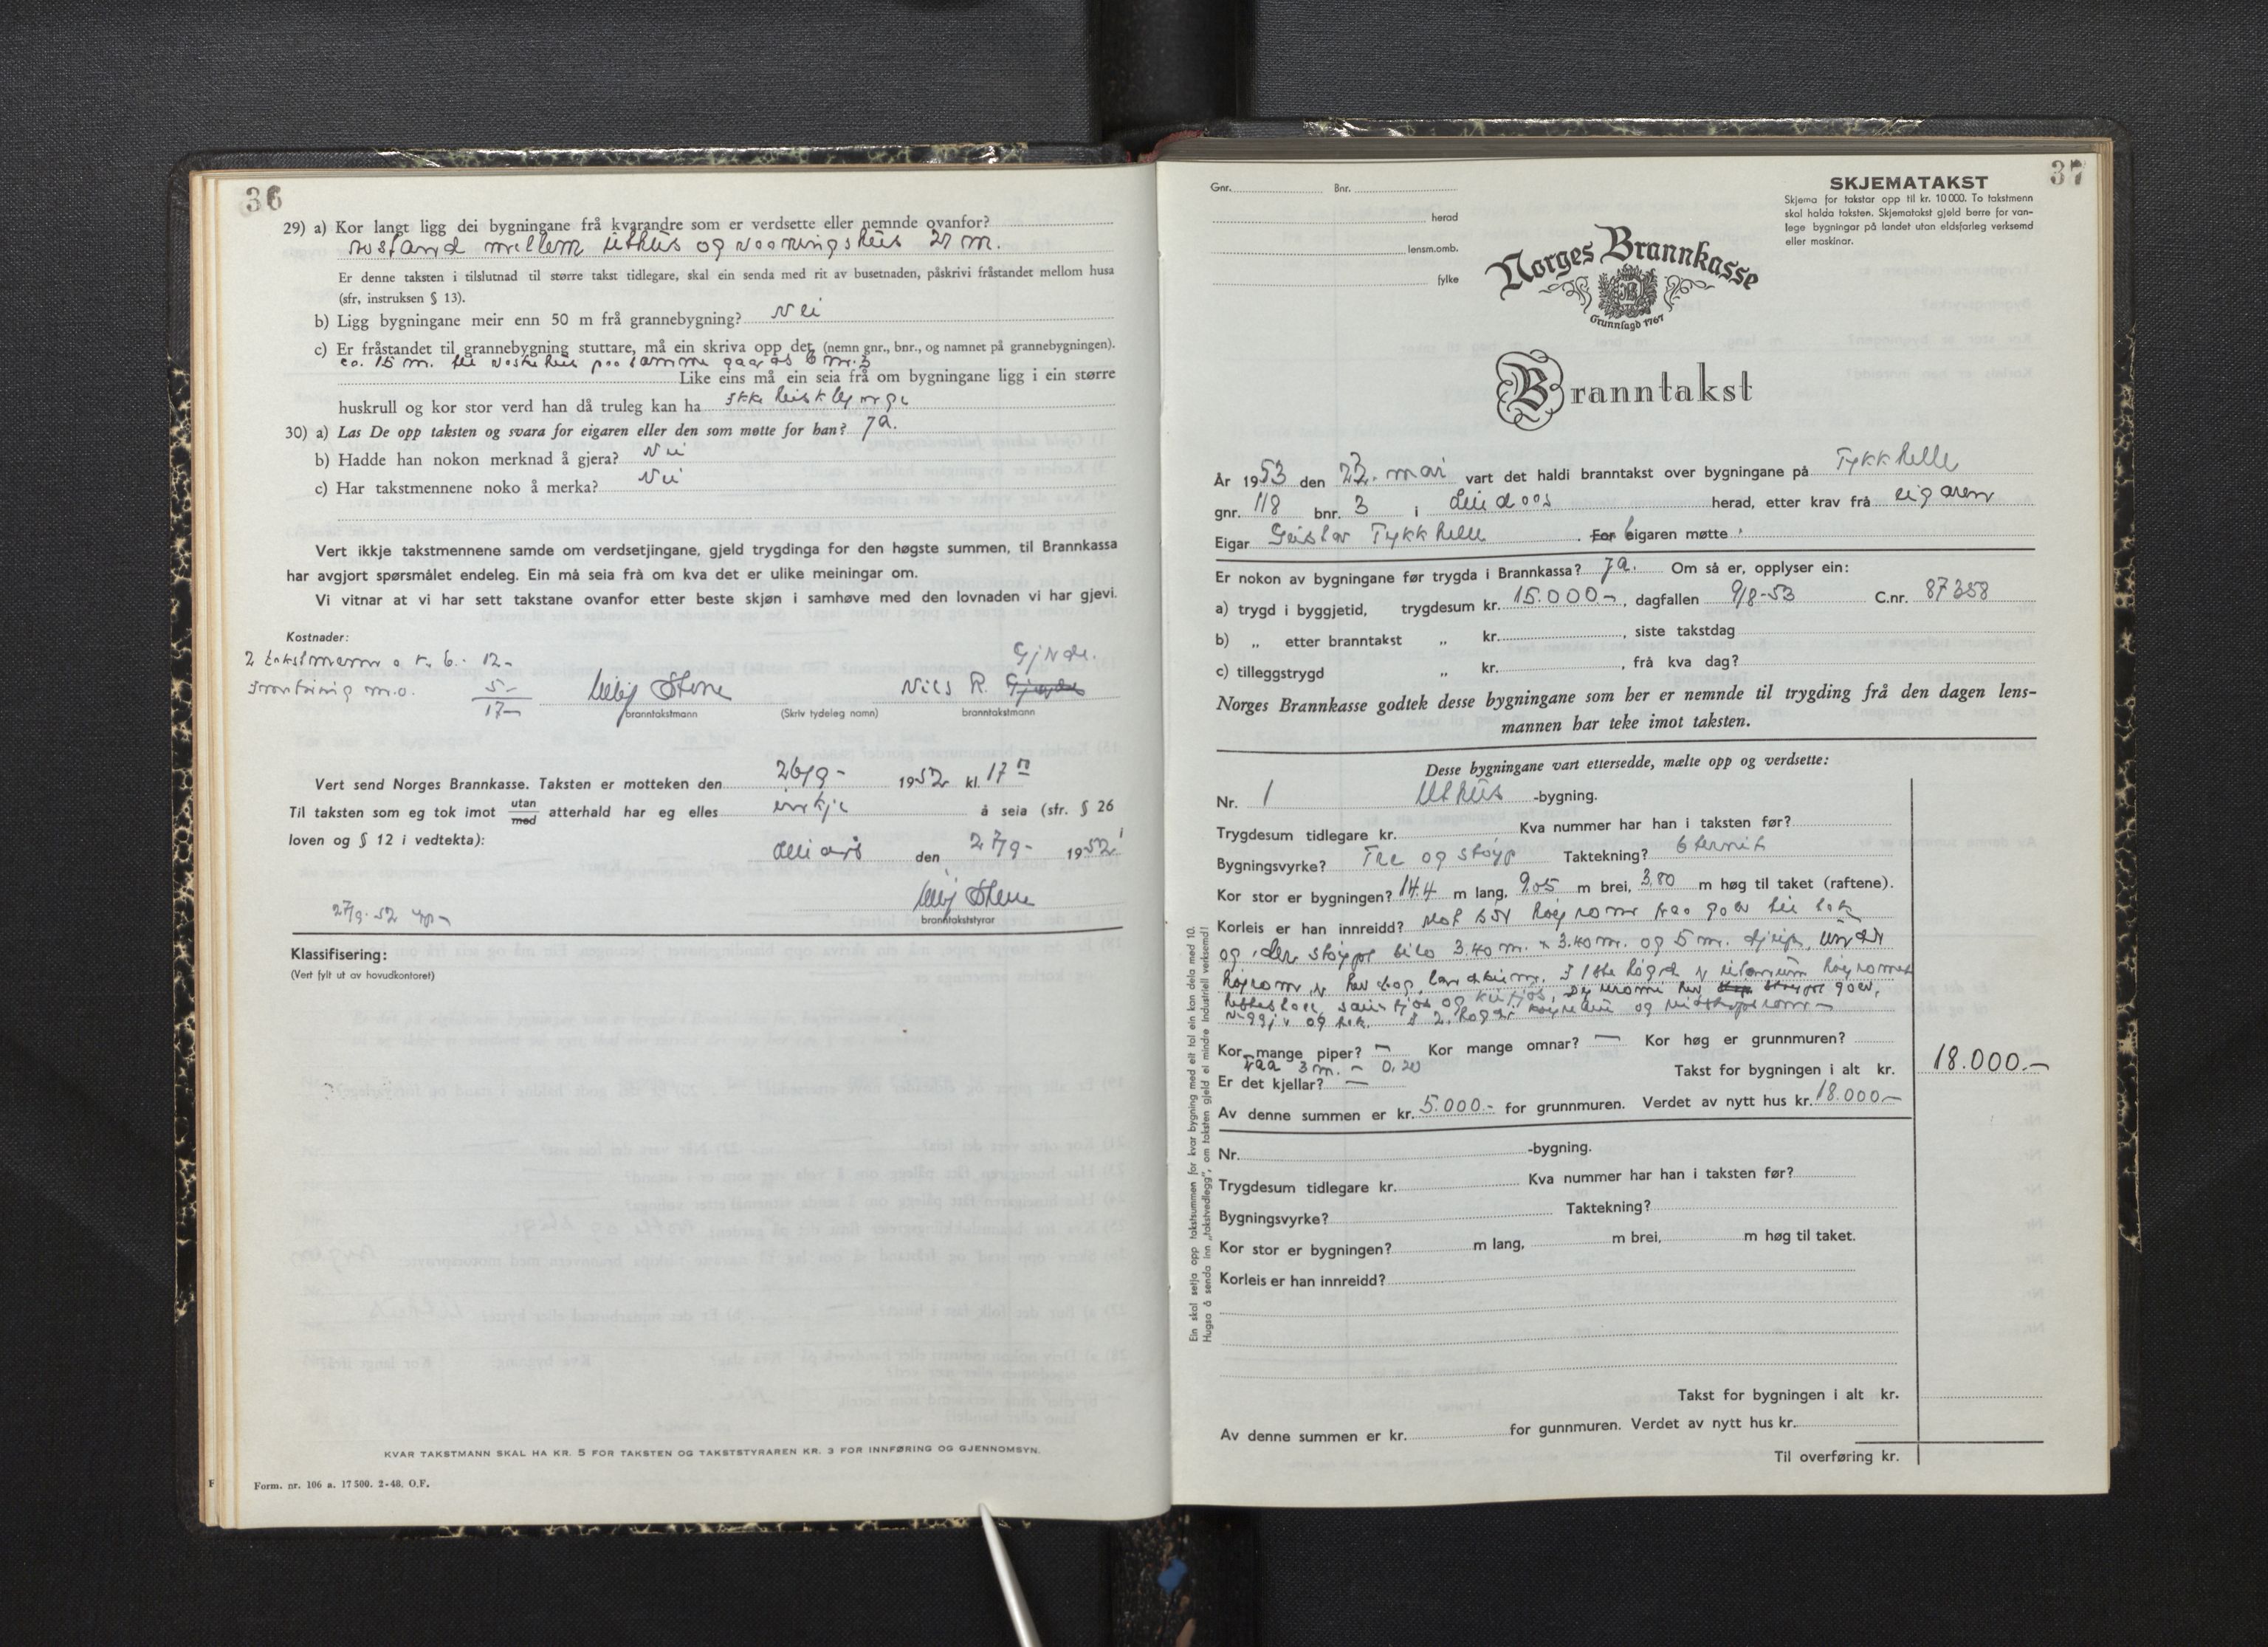 36
29) a) Kor langt ligg dei bygningane frå kvarandre som er verdsette eller nemnde ovanfor?
Avstand mellem uthus og vaaningshus 27 m.
Er denne taksten i tilslutnad til større takst tidlegare, skal ein senda med rit av busetnaden, påskrivi fråstandet mellom husa
(sfr, instruksen § 13).
b) Ligg bygningane meir enn 50 m frå grannebygning? Nei
c) Er fråstandet til grannebygning stuttare, må ein skriva opp det (nemn gnr., bnr., og namnet på grannebygningen).
ca. 15 m. til paa samme
Like eins må ein seia frå om bygningane ligg i ein større
huskrull og kor stor verd han då truleg kan ha ikke
30) a) Las De opp taksten og svara for eigaren eller den som møtte for han? Ja.
b) Hadde han nokon merknad å gjera? Nei
c) Har takstmennene noko å merka? Nei
Vert ikkje takstmennene samde om verdsetjingane, gjeld trygdinga for den høgste summen, til Brannkassa
har avgjort spørsmålet endeleg. Ein må seia frå om kva det er ulike meiningar om.
Vi vitnar at vi har sett takstane ovanfor etter beste skjøn i samhøve med den lovnaden vi har gjevi.
Kostnader:
2 takstmenn a kr. 6.- 12-
m.o. 5-
17-
Stene
branntakstmann
(Skriv tydeleg namn)
Nils R. Gjerde
Gjerde.
branntakstmann
Vert send Norges Brannkasse. Taksten er motteken den 26/9- 1952 kl. 17
Til taksten som eg tok imot utan med atterhald har eg elles inkje å seia (sfr. § 26
loven og § 12 i vedtekta):
den 27/9- 1952
Stene
branntakststyrar
27/9-52
Klassifisering:
(Vert fylt ut av hovudkontoret)
KVAR TAKSTMANN SKAL HA KR. 5 FOR TAKSTEN OG TAKSTSTYRAREN KR. 3 FOR INNFØRING OG GJENNOMSYN.
F
Form. nr. 106 a. 17500. 2-48. O.F.
37
Gnr. Bnr.
herad
lensm.omb.
fylke
SKJEMATAKST
Skjema for takstar opp til kr. 10000. To takstmenn
skal halda taksten. Skjematakst gjeld berre for van-
lege bygningar på landet utan eldsfarleg verksemd
eller maskinar.
Norges Brannkasse
Grunnlagd 1767
Branntakst
År 1953 den 22. mai vart det haldi branntakst over bygningane på Tykkhelle
gnr. 118 bnr. 3 i Lindaas herad, etter krav frå eigaren
Eigar Geislar Tykkhelle. For Eigaren møtte.
Er nokon av bygningane før trygda i Brannkassa? Ja. Om så er, opplyser ein:
a) trygd i byggjetid, trygdesum kr. 15.000-, dagfallen 9/8-53 C.nr. 87358
b) „ etter branntakst „ kr. , siste takstdag
c) tilleggstrygd „ kr. , frå kva dag?
Norges Brannkasse godtek desse bygningane som her er nemnde til trygding frå den dagen lens-
mannen har teke imot taksten.
Desse bygningane vart ettersedde, mælte opp og verdsette:
Nr. 1 Uthus -bygning.
Trygdesum tidlegare kr. Kva nummer har han i taksten før?
Bygningsvyrke? Tre og støyp Taktekning? Eternit
Kor stor er bygningen? 14.4 m lang, 9.05 m brei, 3.80 m høg til taket (raftene).
Korleis er han innreidd? høyrom fraa golv til tak
og støypt silo 3.40 m. x 3.40 m. og 5 m. djup. under
høyrom
og kufjøs, golv,
vegger og tak. I 2. høgd og
Kor mange piper? — Kor mange omnar? — Kor høg er grunnmuren?
fraa 3 m. - 0.20
Er det kjellar? — Takst for bygningen i alt kr. 18.000.-
Av denne summen er kr. 5.000.- for grunnmuren. Verdet av nytt hus kr. 18.000-
Nr. -bygning.
Trygdesum tidlegare kr. Kva nummer har han i taksten før?
Bygningsvyrke? Taktekning?
Kor stor er bygningen? m lang, m brei, m høg til taket.
Korleis er han innreidd?
Takst for bygningen i alt kr.
Av denne summen er kr. for gunnmuren. Verdet av nytt hus kr.
Til overføring kr.
Ein skal setja opp takstsummen for kvar bygning med eit tal ein kan dela med 10.
Hugsa å senda inn „takstvedlegg", om taksten gjeld ei mindre industriell verksemd!